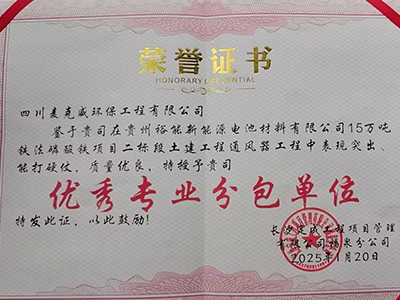 荣誉证书
HONORARY CREDENTIAL
四川麦克威环保工程有限公司
鉴于贵司在贵州裕能新能源电池材料有限公司15万吨
铁法磷酸铁项目二标段土建工程通风器工程中表现突出、
能打硬仗，质量优良，特授予贵司
优秀专业分包单位
特发此证，以此鼓励！
长沙定成工程项目管理
有限公司杨泉分公司
2025年1月20日